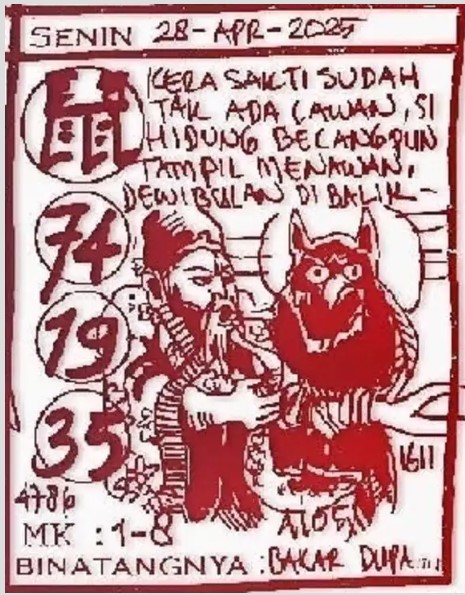 SENIN 28-APR-2025
鼠
KERA SAKTI SUDAH
TAK ADA LAWAN, SI
HIDUNG BELANGPUN
TAMPIL MENAWAN,
DEWI BULAN DI BALIK-
74
19
35
1611
4786
MK : 1-8
BINATANGNYA : BAKAR DUPA